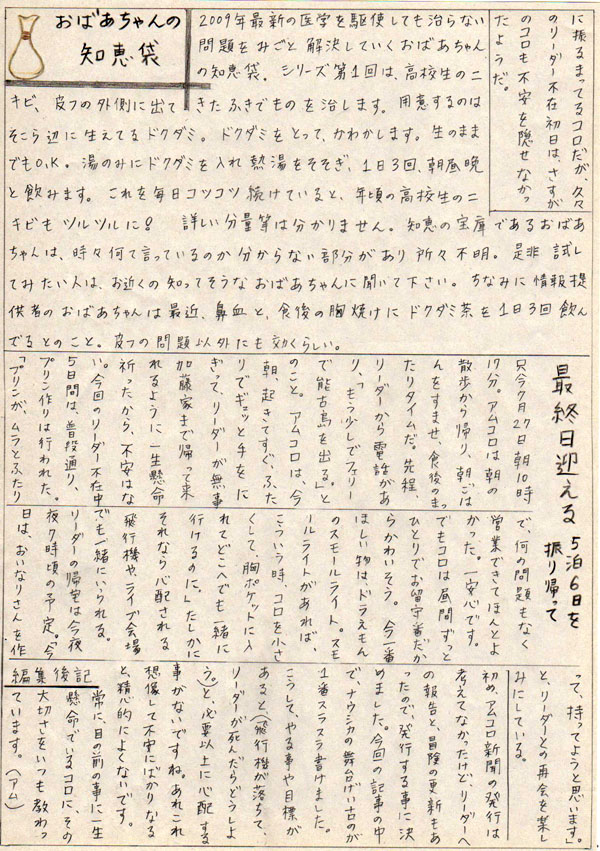 に振るまってるコロだが、久々
のリーダー不在初日は、さすが
のコロも不安を隠せなかっ
たようだ。
おばあちゃんの
知恵袋
2009年最新の医学を駆使しても治らない
問題をみごと解決していくおばあちゃん
の知恵袋。シリーズ第1回は、高校生のニ
キビ、皮フの外側に出てきたふきでものを治します。用意するのは
そこら辺に生えてるドクダミ。ドクダミをとって、かわかします。生のまま
でもO.K。湯のみにドクダミを入れ熱湯をそそぎ、1日3回、朝昼晩
と飲みます。これを毎日コツコツ続けていると、年頃の高校生のニ
キビもツルツルに!詳しい分量等は分かりません。知恵の宝庫であるおばあ
ちゃんは、時々何て言っているのか分からない部分があり所々不明。是非試し
てみたい人は、お近くの知ってそうなおばあちゃんに聞いて下さい。ちなみに情報提
供者のおばあちゃんは最近、鼻血と、食後の胸焼けにドクダミ茶を1日3回飲ん
でるとのこと。皮フの問題以外にも効くらしい。
最終日迎える
5泊6日を
振り帰って
只今7月27日朝10時
17分。アムコロは朝の
散歩から帰り、朝ごは
んをすませ、食後のまっ
たりタイムだ。先程、
リーダーから電話があ
り、「もう少しでフェリー
で能古島を出る。」と
のこと。アムコロは、今
朝、起きてすぐ、ふた
りでギュッと手をに
ぎって、リーダーが無事
加藤家まで帰って来
れるように一生懸命
祈ったから、不安はな
い。今回のリーダー不在中
5日間は、普段通り、
プリン作りは行われた。
「プリンが、ムラとふたり
で、何の問題もなく
営業できてほんとよ
かった。一安心です。
でもコロは昼間ずっと
ひとりでお留守番だか
らかわいそう。今一番
ほしい物は、ドラえもん
のスモールライト。スモ
ールライトがあれば、
こういう時、コロを小さ
くして、胸ポケットに入
れてどこへでも一緒に
行けるのに。」たしかに
それなら心配される
飛行機や、ライブ会場
でも一緒にいられる。
リーダーの帰宅は今夜
夜7時頃の予定。「今
日は、おいなりさんを作
って、持ってようと思います。」
と、リーダーとの再会を楽し
みにしている。
初め、アムコロ新聞の発行は
考えてなかったけど、リーダーへ
の報告と、冒険の更新もあ
ったので、発行する事に決
めました。今回の記事の中
で、ナウシカの舞台のが
1番スラスラ書けました。
こうして、やる事や目標が
あると、(飛行機が落ちて、
リーダーが死んだらどうしよ
う。)と、必要以上に心配する
事がないですね。あれこれ
想像して不安にばかりなる
と、精神的によくないです。
常に、目の前の事に一生
懸命でいるコロに、その
大切さをいつも教わっ
ています。(アム)
編集後記